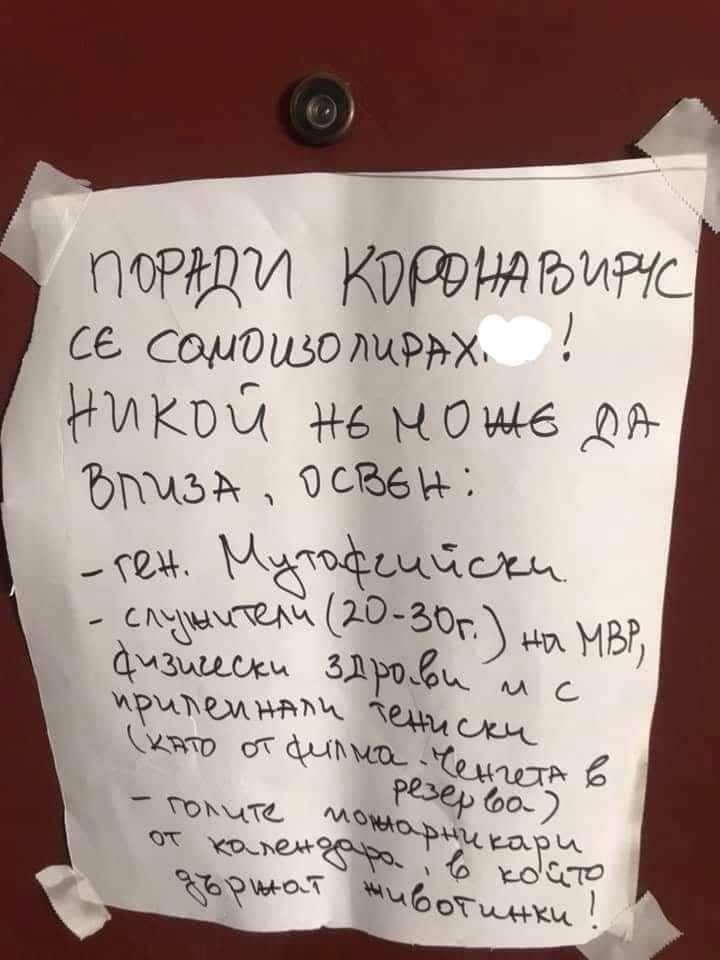 ПОРАДИ КОРОНАВИРУС
СЕ САМОИЗОЛИРАХ !
НИКОЙ НЕ МОЖЕ ДА
ВЛИЗА, ОСВЕН:
- ген. Мутафчийски
- служители (20-30г.) на МВР,
физически здрави и с
прилепнали тениски
(като от филма - Ченгета в
резерва)
- голите пожарникари
от календара, в който
държат животинки!